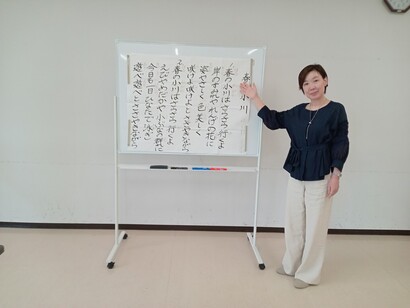 春の小川
一春の小川はさらさら行くよ
岸のすみれやれんげの花に
姿やさしく 色美しく
咲けよ咲けよとささやきながら
二春の小川はさらさら行くよ
えびやめだかや小ぶなの群に
今日も一日ひなたで泳ぎ
遊べ遊べとささやきながら